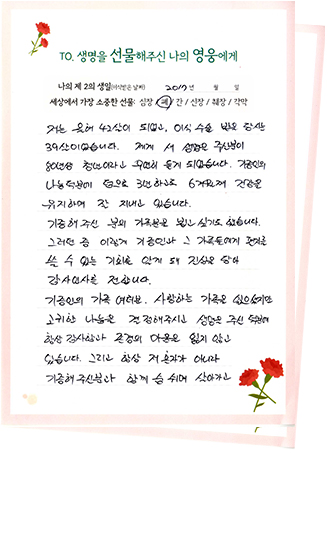 TO. 생명을 선물해주신 나의 영웅에게
나의 제 2의 생일(이식받은 날짜) 2017년 월 일
세상에서 가장 소중한 선물: 심장 / 폐 / 간 / 신장 / 췌장 / 각막
저는 올해 42살이 되었고, 이식 수술 받은 당시
39살이었습니다. 제게 새 생명을 주신분이
80년생 청년이라고 우연히 듣게 되었습니다. 기증인의
나눔덕분에 덤으로 3년하고도 6개월째 건강을
유지하며 잘 지내고 있습니다.
기증해주신 분의 가족분을 뵙고 싶기도 했습니다.
그러던 중 이렇게 기증인과 그 가족들에게 편지를
쓸 수 있는 기회를 알게 돼 진심을 담아
감사인사를 전합니다.
기증인의 가족 여러분. 사랑하는 가족을 잃으셨지만
고귀한 나눔을 결정해주시고 생명을 주신 덕분에
항상 감사함과 존경의 마음을 잊지 않고
있습니다. 그리고 항상 저 혼자가 아니라
기증해주신분과 함께 숨 쉬며 살아가고